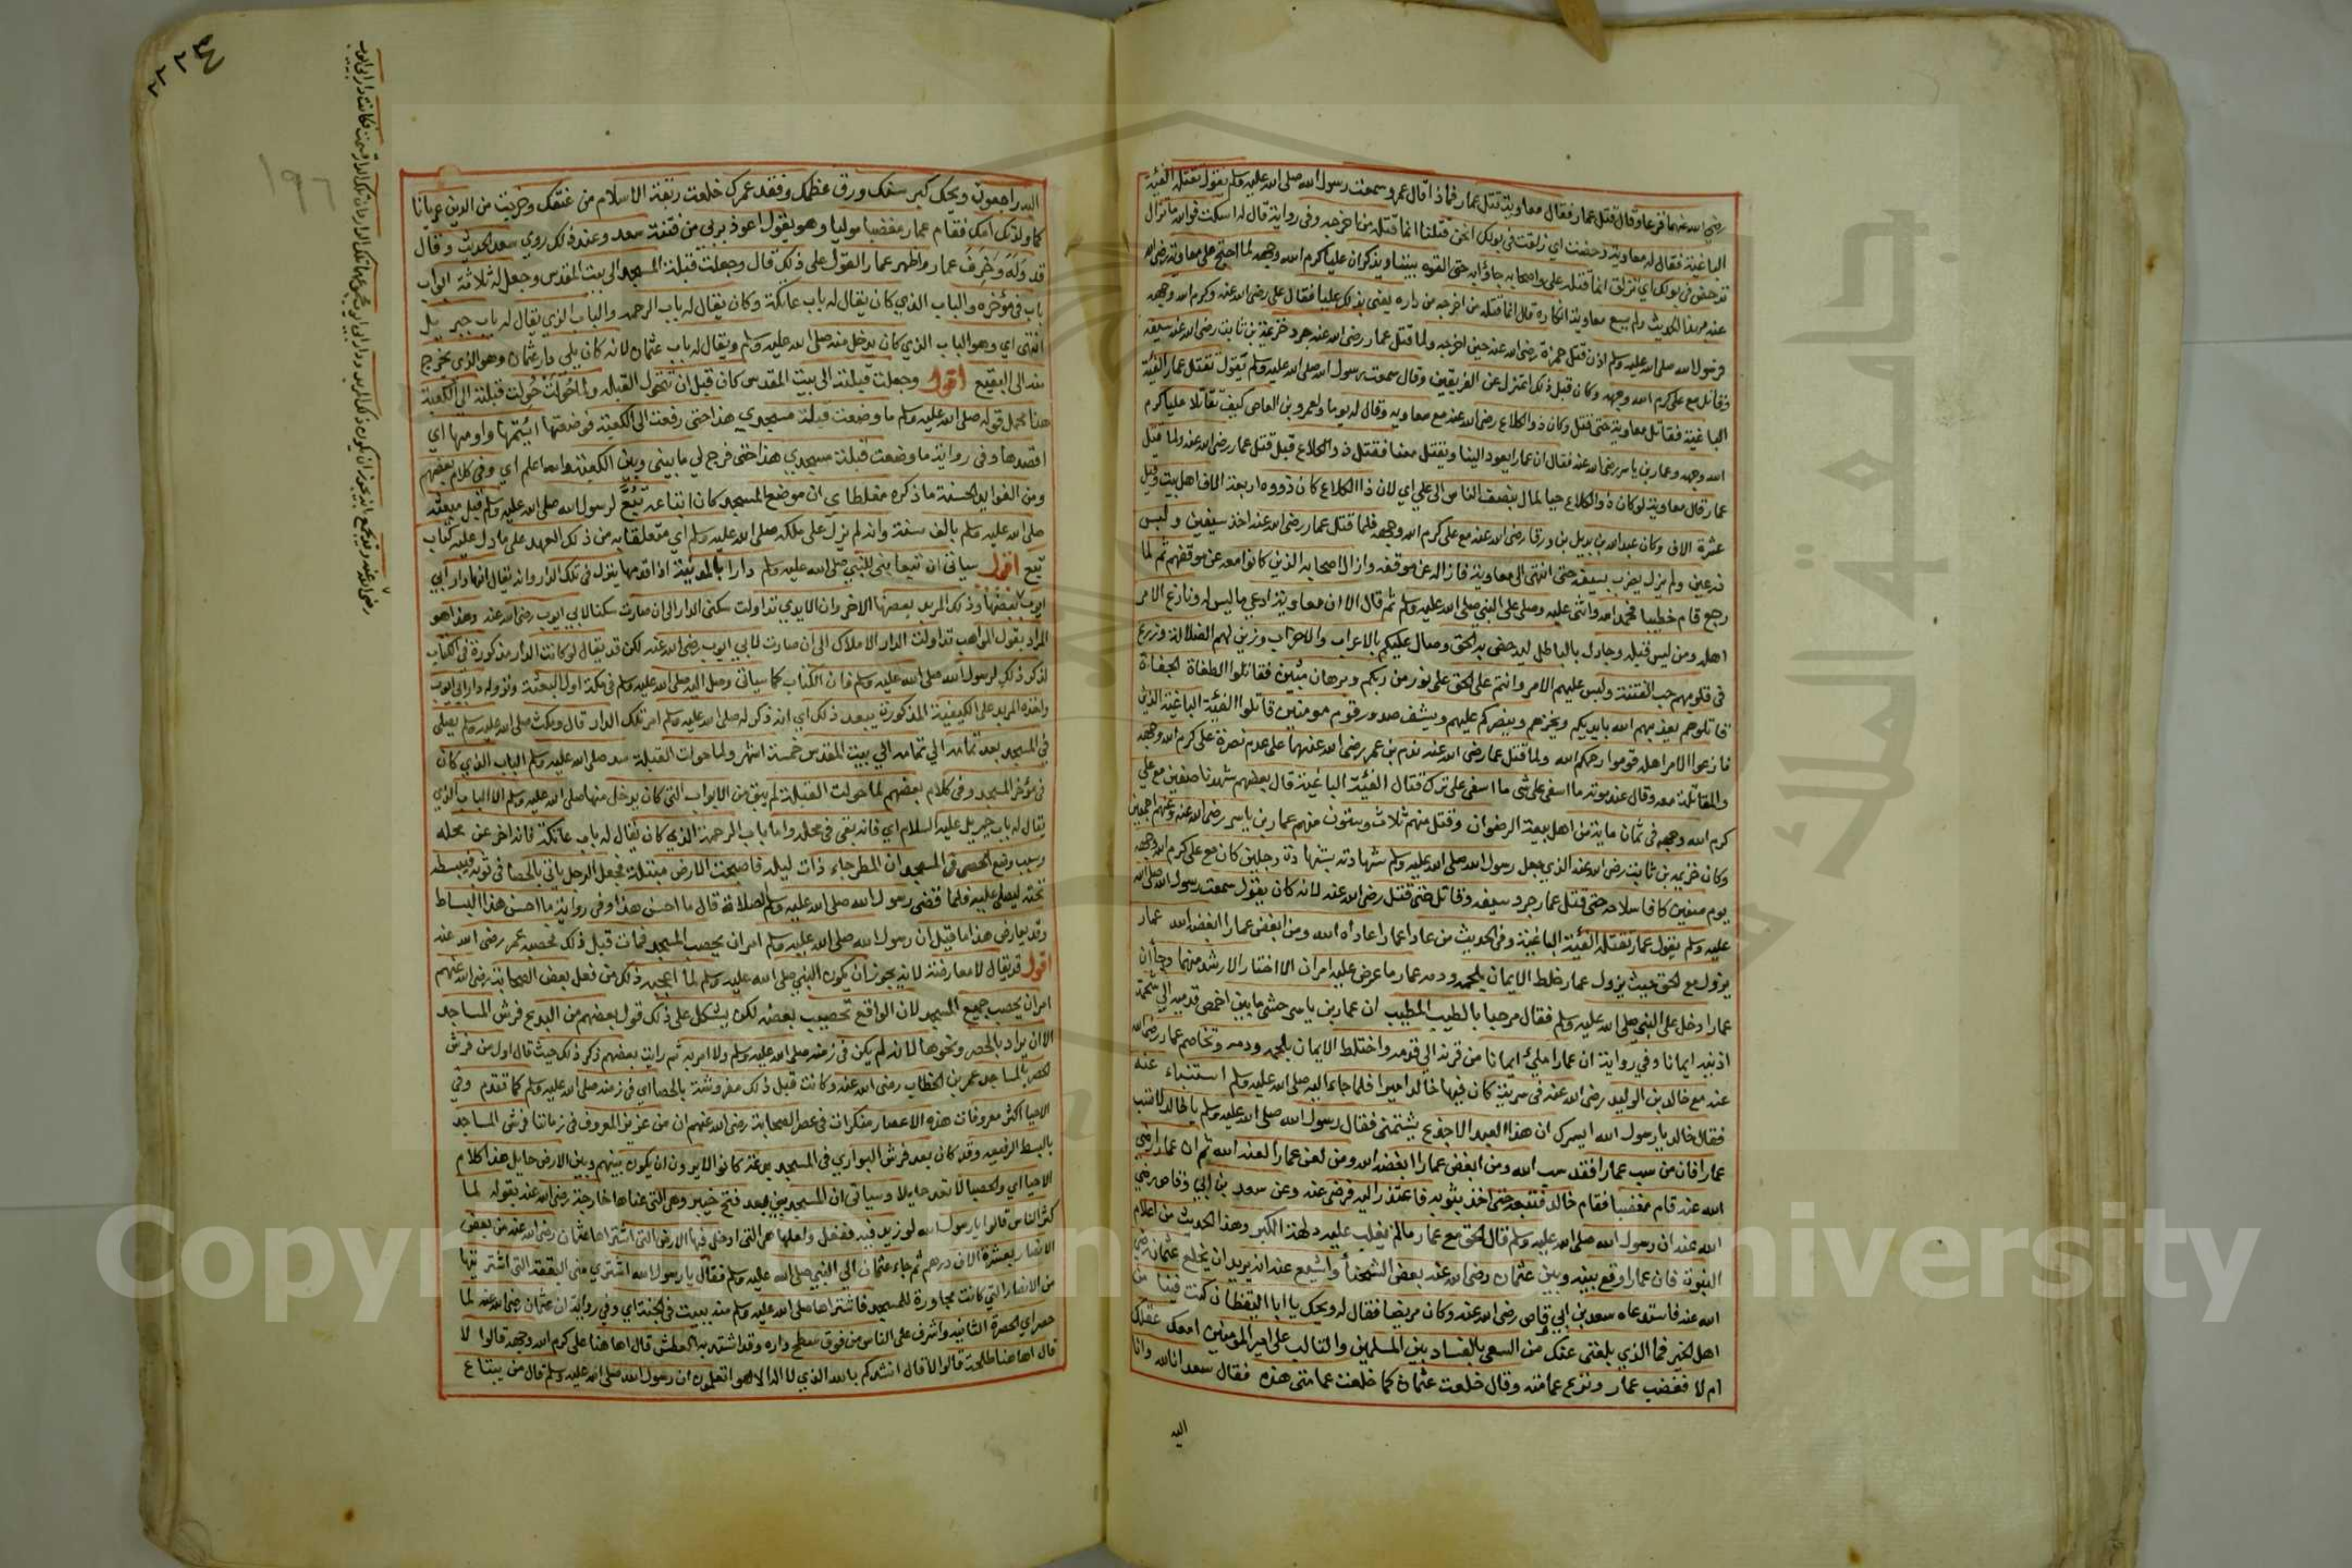 رضي الله عنهما فزعا وقال قتل عمار فقال معاوية قتل عمار فماذا قال عمرو سمعت رسول الله صلى الله عليه وسلم يقول تقتله الفئة
الباغية فقال له معاوية دحضت اي زلقت في بولك انحن قتلناه انما قتله من اخرجه وفي رواية قال له اسكت فوالله ما تزال
تدحض في بولك اي تزلق انما قتله علي واصحابه جاؤا به حتى القوه بيننا ويذكر ان عليا كرم الله وجهه لما احتج على معاوية رضي الله
عنه بهذا الحديث ولم يسع معاوية انكاره قال انما قتله من اخرجه من داره يعني بذلك عليا فقال علي رضي الله عنه وكرم الله وجهه
فرسول الله صلى الله عليه وسلم اذن قتل حمزة رضي الله عنه حين اخرجه ولما قتل عمار رضي الله عنه جرد خزيمة بن ثابت رضي الله عنه سيفه
وقاتل مع علي كرم الله وجهه وكان قبل ذلك اعتزل عن الفريقين وقال سمعت رسول الله صلى الله عليه وسلم يقول تقتل عمار الفئة
الباغية فقاتل معاوية حتى قتل وكان ذو الكلاع رضي الله عنه مع معاوية وقال له يوما ولعمرو بن العاص كيف نقاتل عليا كرم
الله وجهه وعمار بن ياسر رضي الله عنه فقال ان عمارا يعود الينا ويقتل معنا فقتل ذو الكلاع قبل قتل عمار رضي الله عنه ولما قتل
عمار قال معاوية لو كان ذو الكلاع حيا لمال بنصف الناس الى علي اي لان ذا الكلاع كان ذووه اربعة الاف اهل بيت وقيل
عشرة الاف وكان عبد الله بن بديل بن ورقا رضي الله عنه مع علي كرم الله وجهه فلما قتل عمار رضي الله عنه اخذ سيفين ولبس
درعين ولم يزل يضرب بسيفه حتى انتهى الى معاوية فازاله عن موقفه وازال اصحابه الذين كانوا معه عن موقفهم ثم لما
رجع قام خطيبا فحمد الله واثنى عليه وصلى على النبي صلى الله عليه وسلم ثم قال الا ان معاوية ادعى ما ليس له ونازع الامر
اهله ومن ليس قبله وجادل بالباطل ليدحض به الحق وصال عليكم بالاعراب والاحزاب وزين لهم الضلالة وزرع
في قلوبهم حب الفتنة ولبس عليهم الامر وانتم على الحق على نور من ربكم وبرهان مبين فقاتلوا الطغاة الجفاة
قاتلوهم يعذبهم الله بايديكم ويخزهم وينصركم عليهم ويشف صدور قوم مومنين قاتلوا الفئة الباغية الذين
نازعوا الامر اهله قوموا رحمكم الله ولما قتل عمار رضي الله عنه ندم بن عمر رضي الله عنهما على عدم نصرة علي كرم الله وجهه
والمقاتلة معه وقال عند موته ما اسفى على شي ما اسفى على ترك قتال الفئة الباغية قال بعضهم شهدنا صفين مع علي
كرم الله وجهه في ثمان ماية من اهل بيعة الرضوان وقتل منهم ثلاث وستون منهم عمار بن ياسر رضي الله عنه وعنهم اجمعين
وكان خزيمة بن ثابت رضي الله عنه الذي جعل رسول الله صلى الله عليه وسلم شهادته بشهادة رجلين كان مع علي كرم الله وجهه
يوم صفين كافا سلاحه حتى قتل عمار جرد سيفه وقاتل حتى قتل رضي الله عنه لانه كان يقول سمعت رسول الله صلى الله
عليه وسلم يقول عمار تقتله الفئة الباغية وفي الحديث من عادا عمارا عاداه الله ومن ابغض عمارا ابغضه الله عمار
يزول مع الحق حيث يزول عمار خلط الايمان بلحمه ودمه عمار ما عرض عليه امران الا اختار الارشد منهما وجا ان
عمارا دخل على النبي صلى الله عليه وسلم فقال مرحبا بالطيب المطيب ان عمار بن ياسر حشي ما بين اخمص قدميه الى شحمة
اذنيه ايمانا وفي رواية ان عمارا مليء ايمانا من قرنه الى قدمه واختلط الايمان بلحمه ودمه وتخاصم عمار رضي الله
عنه مع خالد بن الوليد رضي الله عنه في سرية كان فيها خالد اميرا فلما جاءا اليه صلى الله عليه وسلم استبا عنده
فقال خالد يا رسول الله ايسرك ان هذا العبد الاجدع يشتمني فقال رسول الله صلى الله عليه وسلم يا خالد لا تسب
عمارا فان من سب عمارا فقد سب الله ومن ابغض عمارا ابغضه الله ومن لعن عمارا لعنه الله ثم ان عمارا رضي
الله عنه قام مغضبا فقام خالد فتبعه حتى اخذ بثوبه فاعتذر اليه فرضي عنه وعن سعد بن ابي وقاص رضي
الله عنه ان رسول الله صلى الله عليه وسلم قال الحق مع عمار ما لم يغلب عليه دلهة الكبر وهذا الحديث من اعلام
النبوة فان عمارا وقع بينه وبين عثمان رضي الله عنه بعض الشحناء واشيع عنه انه يريد ان يخلع عثمان رضي
الله عنه فاستدعاه سعد بن ابي وقاص رضي الله عنه وكان مريضا فقال له ويحك يا ابا اليقظان كنت فينا من
اهل الخير فما الذي بلغني عنك من السعي بالفساد بين المسلمين والتالب على امير المومنين امعك عقلك
ام لا فغضب عمار ونزع عمامته وقال خلعت عثمان كما خلعت عمامتي هذه فقال سعد انا لله وانا
اليه
٢٢٤
١٩٦
اليه راجعون ويحك كبر سنك ورق عظمك ونفد عمرك خلعت ربقة الاسلام من عنقك وخرجت من الدين عريانا
كما ولدتك امك فقام عمار مغضبا موليا وهو يقول اعوذ بربي من فتنة سعد وعند ذلك روي سعد الحديث وقال
قد وله وخرف عمار واظهر عمار القول على ذلك قال وجعلت قبلة المسجد الى بيت المقدس وجعل له ثلاثة ابواب
باب في مؤخره والباب الذي كان يقال له باب عاتكة وكان يقال له باب الرحمة والباب الذي يقال له باب جبريل
انتهى اي وهو الباب الذي كان يدخل منه صلى الله عليه وسلم ويقال له باب عثمان لانه كان يلي دار عثمان وهو الذي يخرج
منه الى البقيع اقول وجعلت قبلته الى بيت المقدس كان قبل ان تحول القبلة ولما حولت حولت قبلته الى الكعبة
هذا محمل قوله صلى الله عليه وسلم ما وضعت قبلة مسجدي هذا حتى رفعت الى الكعبة فوضعتها ايممها واومها اي
اقصدها وفي رواية ما وضعت قبلة مسجدي هذا حتى فرج لي ما بيني وبين الكعبة والله اعلم اي وفي كلام بعضهم
ومن الفوايد الحسنة ما ذكره مغلطاي ان موضع المسجد كان ابتاعه تبع لرسول الله صلى الله عليه وسلم قبل مبعثه
صلى الله عليه وسلم بالف سنة وانه لم يزل على ملكه صلى الله عليه وسلم اي متعلقا به من ذلك العهد على ما دل عليه كتاب
تبع اقول سياتي ان تبعا بنى للنبي صلى الله عليه وسلم دارا بالمدينة اذا قدمها ينزل في تلك الدار وانه يقال انها دار ابي
ايوب بعضها وذلك المربد بعضها الاخر وان الايدي تداولت سكنى الدار الى ان صارت سكنا لابي ايوب رضي الله عنه وهذا هو
المراد بقول المواهب تداولت الدار الاملاك الى ان صارت لابي ايوب رضي الله عنه لكن قد يقال لو كانت الدار مذكورة في الكتاب
لذكر ذلك لرسول الله صلى الله عليه وسلم فان الكتاب كما سياتي وصل اليه صلى الله عليه وسلم في مكة اول البعثة ونزوله دار ابي ايوب
واخذه المربد على الكيفية المذكورة يبعد ذلك اي انه ذكر له صلى الله عليه وسلم امر تلك الدار قال ومكث صلى الله عليه وسلم يصلي
في المسجد بعد تمامه الى بيت المقدس خمسة اشهر ولما حولت القبلة سد صلى الله عليه وسلم الباب الذي كان
في مؤخر المسجد وفي كلام بعضهم لما حولت القبلة لم يبق من الابواب التي كان يدخل منها صلى الله عليه وسلم الا الباب الذي
يقال له باب جبريل عليه السلام اي فانه بقى في محله واما باب الرحمة الذي كان يقال له باب عاتكة فانه اخر عن محله
وسبب وضع الحصى في المسجد ان المطر جاء ذات ليلة فاصبحت الارض مبتلة فجعل الرجل ياتي بالحصا في ثوبه فيبسطه
تحته ليصلي عليه فلما قضى رسول الله صلى الله عليه وسلم الصلاة قال ما احسن هذا وفي رواية ما احسن هذا البساط
وقد يعارض هذا ما قيل ان رسول الله صلى الله عليه وسلم امر ان يحصب المسجد فمات قبل ذلك فحصبه عمر رضي الله عنه
اقول قد يقال لا معارضة لانه يجوز ان يكون النبي صلى الله عليه وسلم لما اعجبه ذلك من فعل بعض الصحابة رضي الله عنهم
امر ان يحصب جميع المسجد لان الواقع تحصيب بعضه لكن يشكل على ذلك قول بعضهم من البدع فرش المساجد
الا ان يراد بالحصر ونحوها لانه لم يكن في زمنه صلى الله عليه وسلم ولا امر به ثم رايت بعضهم ذكر ذلك حيث قال اول من فرش
الحصر بالمساجد عمر بن الخطاب رضي الله عنه وكانت قبل ذلك مفروشة بالحصا اي في زمنه صلى الله عليه وسلم كما تقدم وفي
الاحيا اكثر معروفات هذه الاعصار منكرات في عصر الصحابة رضي الله عنهم ان من عزيز المعروف في زماننا فرش المساجد
بالبسط الرفيعة وقد كان يعد فرش البواري في المسجد بدعة كانوا لا يرون ان يكون بينهم وبين الارض حايل هذا كلام
الاحيا اي والحصبا لا تعد حايلا وسياتي ان المسجد بني بعد فتح خيبر وهي التي عناها خارجة رضي الله عنه بقوله لما
كثر الناس قالوا يا رسول الله لو زيد فيه ففعل ولعلها هي التي ادخل فيها الارض التي اشتراها عثمان رضي الله عنه من بعض
الانصار بعشرة الاف درهم ثم جاء عثمان الى النبي صلى الله عليه وسلم فقال يا رسول الله اشتري مني البقعة التي اشتريتها
من الانصار التي كانت مجاورة للمسجد فاشتراها صلى الله عليه وسلم منه ببيت في الجنة اي وفي رواية ان عثمان رضي الله عنه لما
حصر اي الحصرة الثانية واشرف على الناس من فوق سطح داره وقد اشتد به العطش قال اها هنا علي كرم الله وجهه قالوا لا
قال اها هنا طلحة قالوا لا قال انشدكم بالله الذي لا اله الا هو اتعلمون ان رسول الله صلى الله عليه وسلم قال من يبتاع
Copyright © King Saud University
جامعة الملك سعود